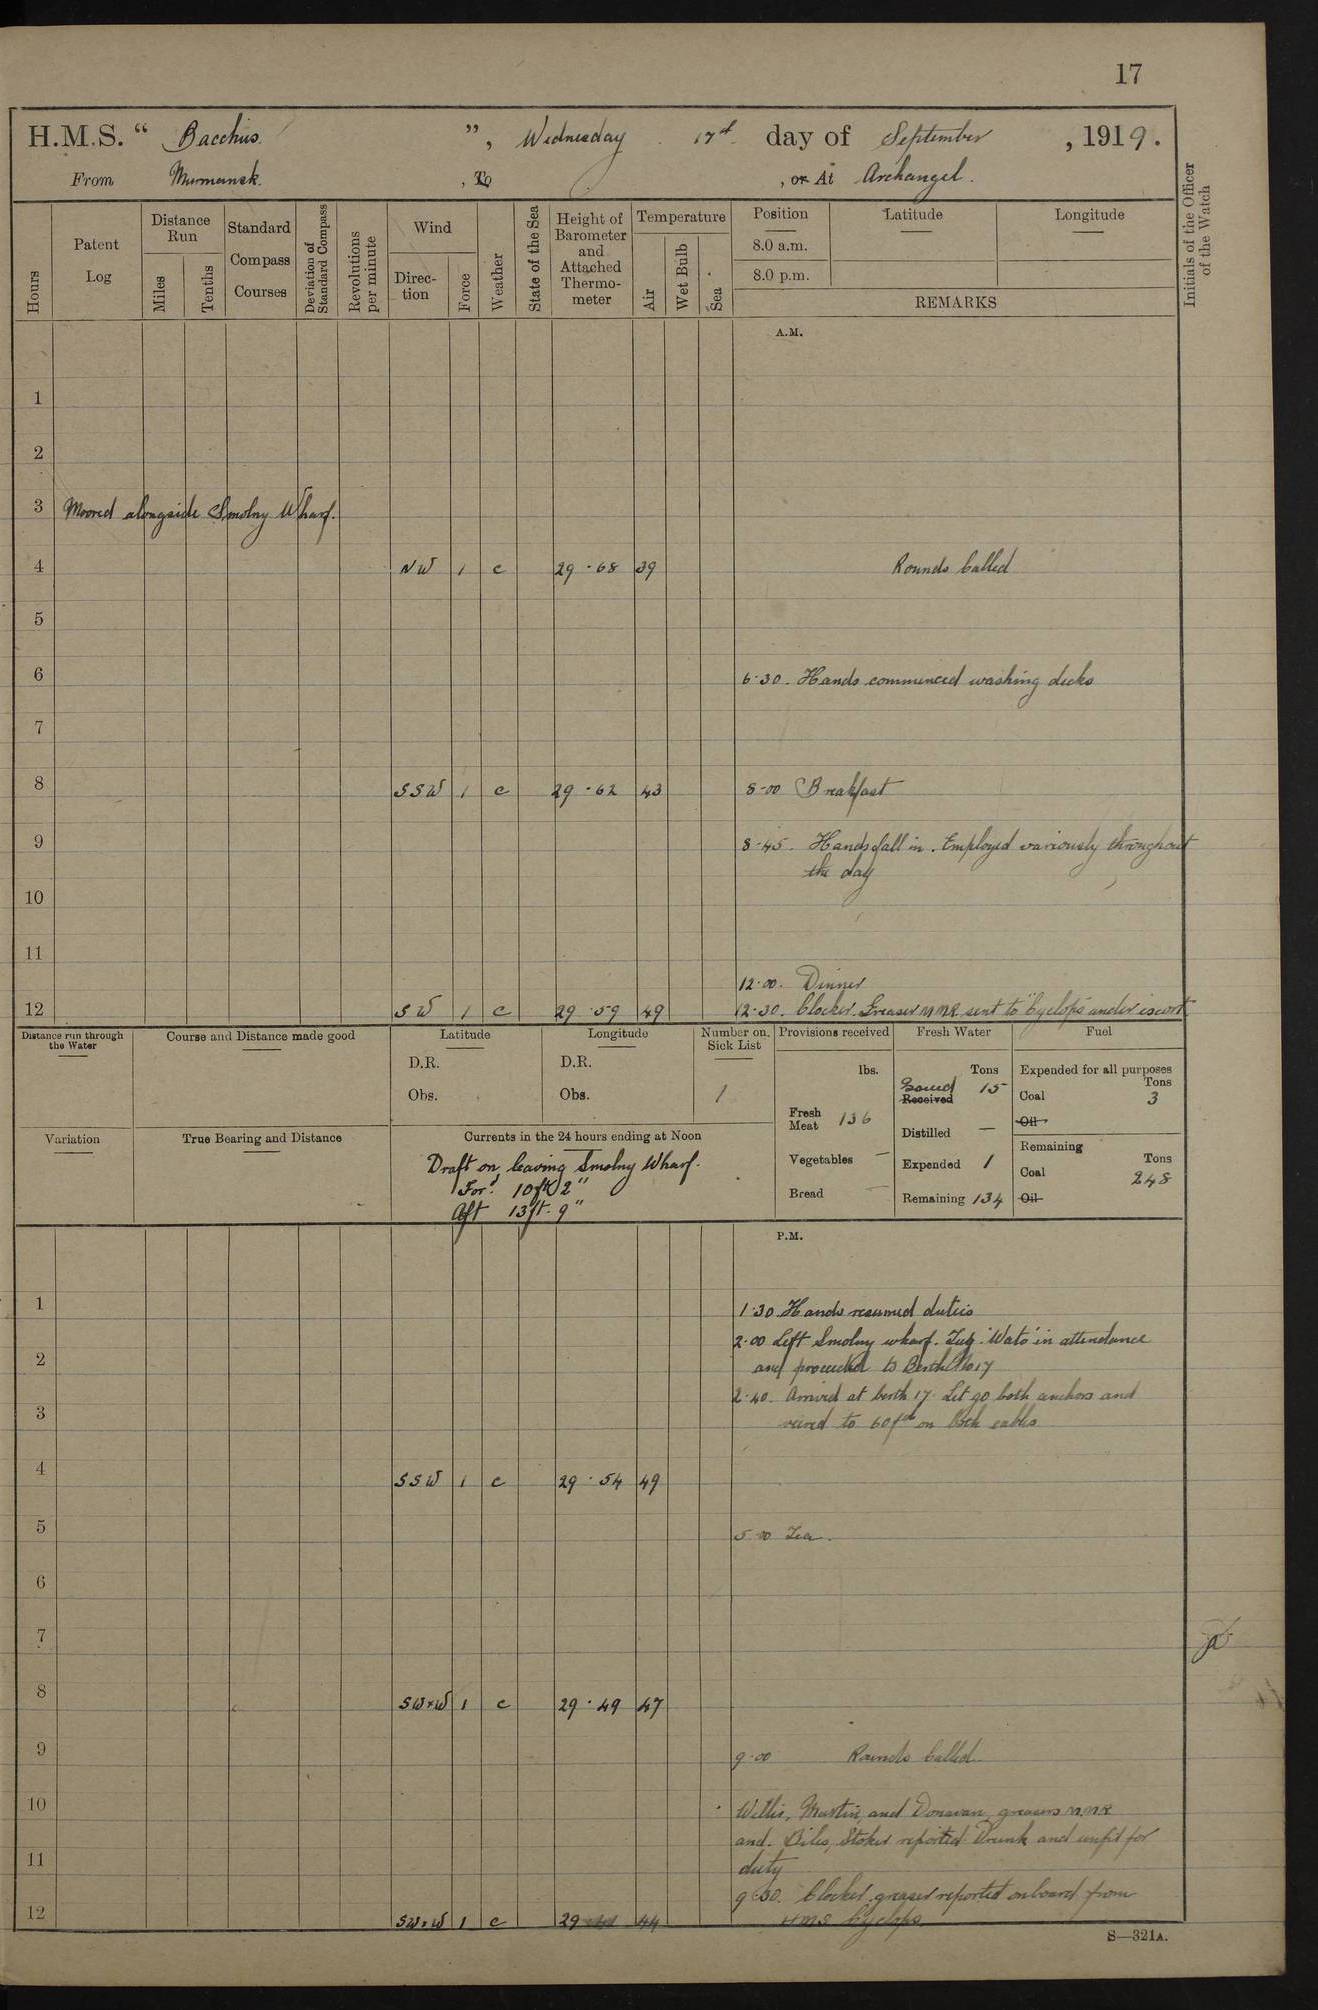 17
H.M.S. “ Bacchus ”, Wednesday 17th day of September, 1919.
From Murmansk, To , or At Archangel.
Hours
Patent Log
Distance Run
Miles
Tenths
Standard Compass Courses
Deviation of Standard Compass
Revolutions per minute
Wind
Direction
Force
Weather
State of the Sea
Height of Barometer and Attached Thermometer
Temperature
Air
Wet Bulb
Sea
Position
8.0 a.m.
8.0 p.m.
Latitude
Longitude
REMARKS
Initials of the Officer of the Watch
A.M.
1
2
3 Moored alongside Smolny Wharf.
4 NW 1 c 29·68 39 Rounds Called
5
6 6·30. Hands commenced washing decks
7
8 SSW 1 c 29·62 43 8·00 Breakfast
9 8·45. Hands fall in. Employed variously throughout
the day
10
11
12·00. Dinner
12 SW 1 c 29·59 49 12·30. Clocker. Greaser MMR sent to "Cyclops" under escort
Distance run through the Water
Course and Distance made good
Latitude
D.R.
Obs.
Longitude
D.R.
Obs.
Number on Sick List
1
Provisions received
lbs.
Fresh Meat 136
Vegetables —
Bread —
Fresh Water
Tons
Received 15
Distilled —
Expended 1
Remaining 134
Fuel
Expended for all purposes
Tons
Coal 3
Oil
Remaining
Tons
Coal 248
Oil
Variation
True Bearing and Distance
Currents in the 24 hours ending at Noon
Draft on leaving Smolny Wharf.
Ford. 10ft 2"
Aft 13ft. 9"
P.M.
1 1·30. Hands resumed duties
2·00 Left Smolny wharf. Tug "Wato" in attendance
2 and proceeded to Berth No 17
2·40. Arrived at berth 17. Let go both anchors and
3 veered to 60 fth on both cables
4 SSW 1 c 29·54 49
5 5·00 Tea.
6
7
8 SW×W 1 c 29·49 47
9 9·00 Rounds Called
10 Willis, Martin, and Donavan, greasers MMR
and. Stoker reported Drunk and unfit for
11 duty
9·30. Clocker, greaser reported onboard from
12 SW×W 1 c 29 44 HMS Cyclops
S—321A.